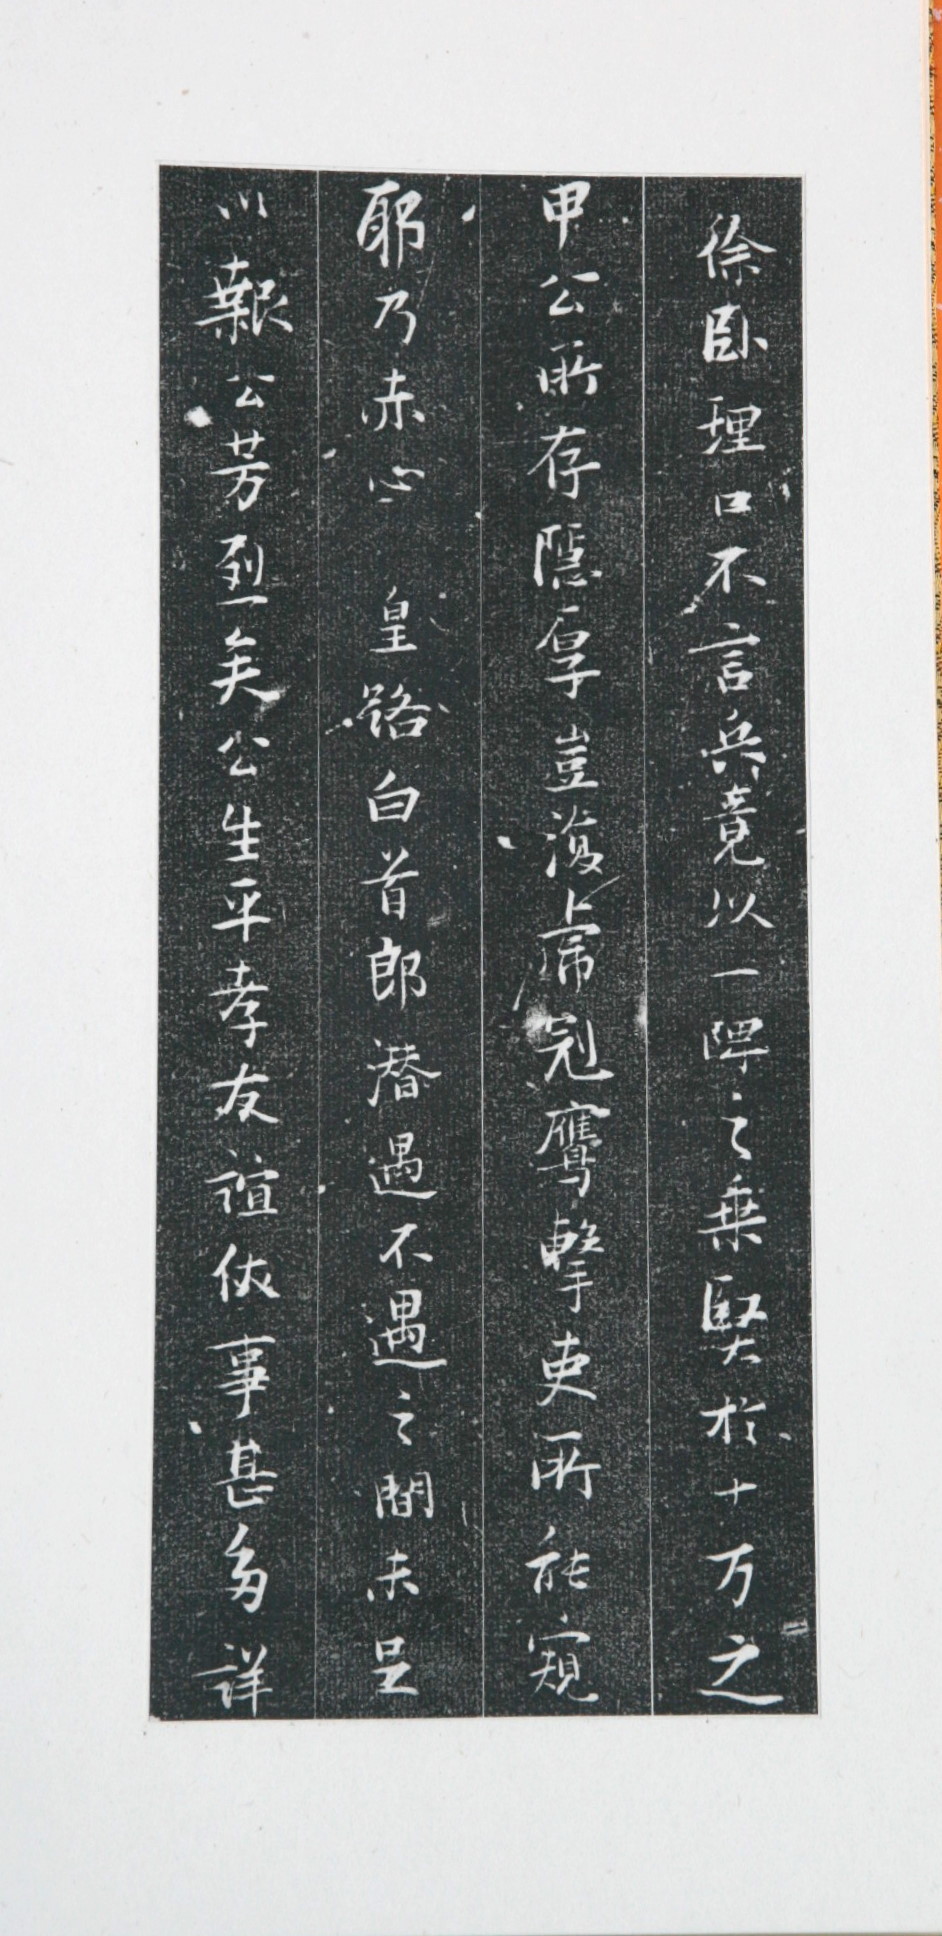 徐臥理口不言兵竟以一障之乗賢於十万之
甲公所存隱厚豈復虎冠鷹擊吏所能窺
耶乃赤心皇路白首郎潛遇不遇之間未足
以報公芳烈矣公生平孝友誼俠事甚多詳